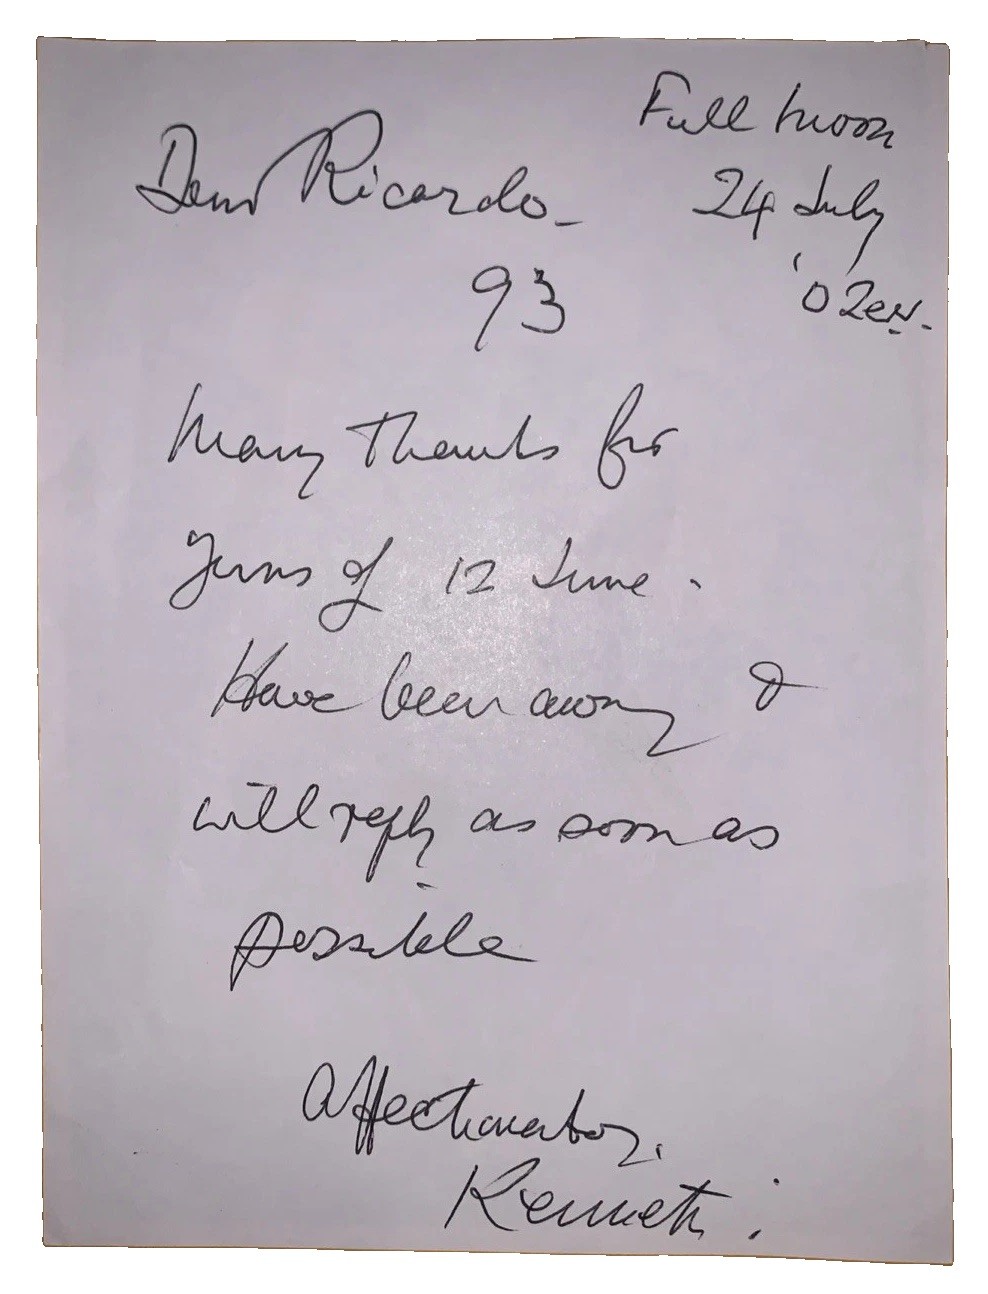 Full Moon
24 July
'02 e.v.
Dear Ricardo -
93
Many thanks for
yours of 12 June.
Have been away &
will reply as soon as
possible
Affectionately,
Kenneth.